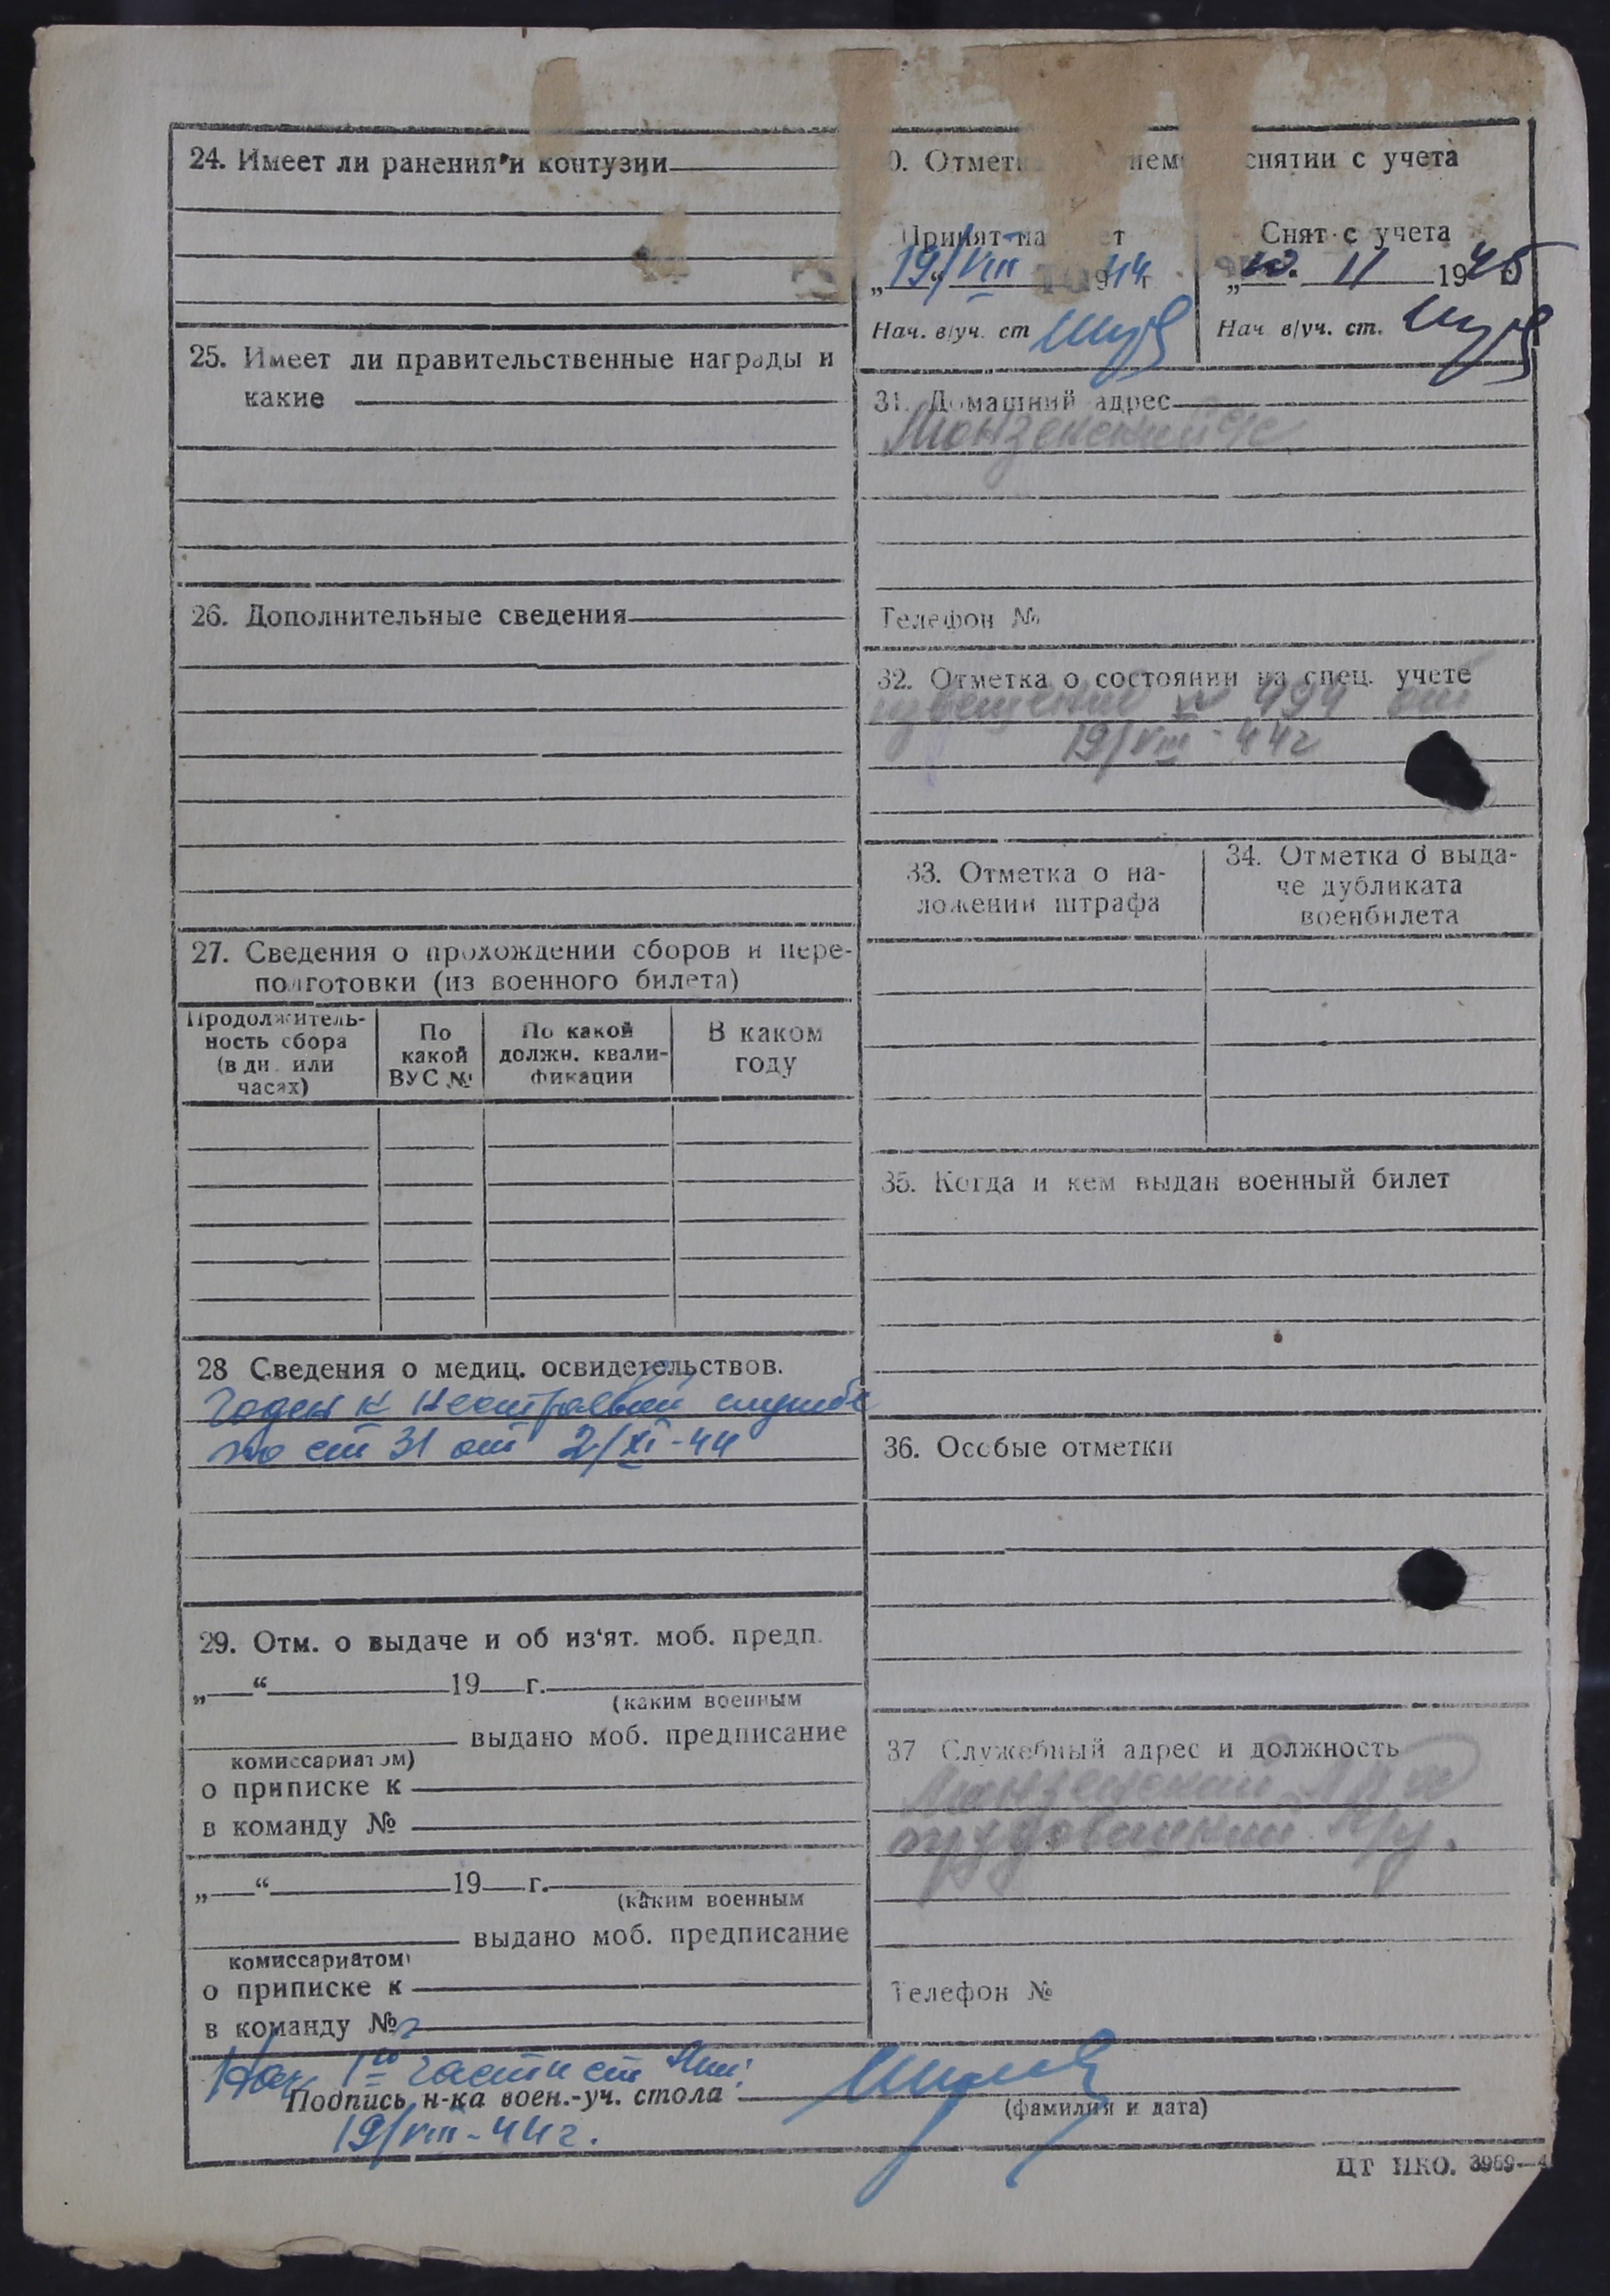 24. Имеет ли ранения и контузии
25. Имеет ли правительственные награды и
какие
26. Дополнительные сведения
27. Сведения о прохождении сборов и пере-
подготовки (из военного билета)
Продолжитель-
ность сбора
(в дн. или
часах)
По
какой
ВУС №
По какой
должн. квали-
фикации
В каком
году
28 Сведения о медиц. освидетельствов.
Годен к нестроевой службе
по ст 31 от 2/XI-44
29. Отм. о выдаче и об из'ят. моб. предп.
„ “ 19 г.
(каким военным
выдано моб. предписание
комиссариатом)
о приписке к
в команду №
„ “ 19 г.
(каким военным
выдано моб. предписание
комиссариатом)
о приписке к
в команду №
0. Отмет нем снятии с учета
Принят на ет
„19/VIII 1944 г
Нач. в/уч. ст
Снят с учета
11 1945
Нач в/уч. ст.
31. Домашний адрес
Монзенский
Телефон №
32. Отметка о состоянии на спец. учете
извещение № 494 от
19/VIII-44г
33. Отметка о на-
ложении штрафа
34. Отметка о выда-
че дубликата
военбилета
35. Когда и кем выдан военный билет
36. Особые отметки
37 Служебный адрес и должность
Монзенский
Телефон №
Нач 1й части ст
Подпись н-ка воен.-уч. стола
(фамилия и дата)
19/VIII-44г.
ЦТ НКО. 3969—4